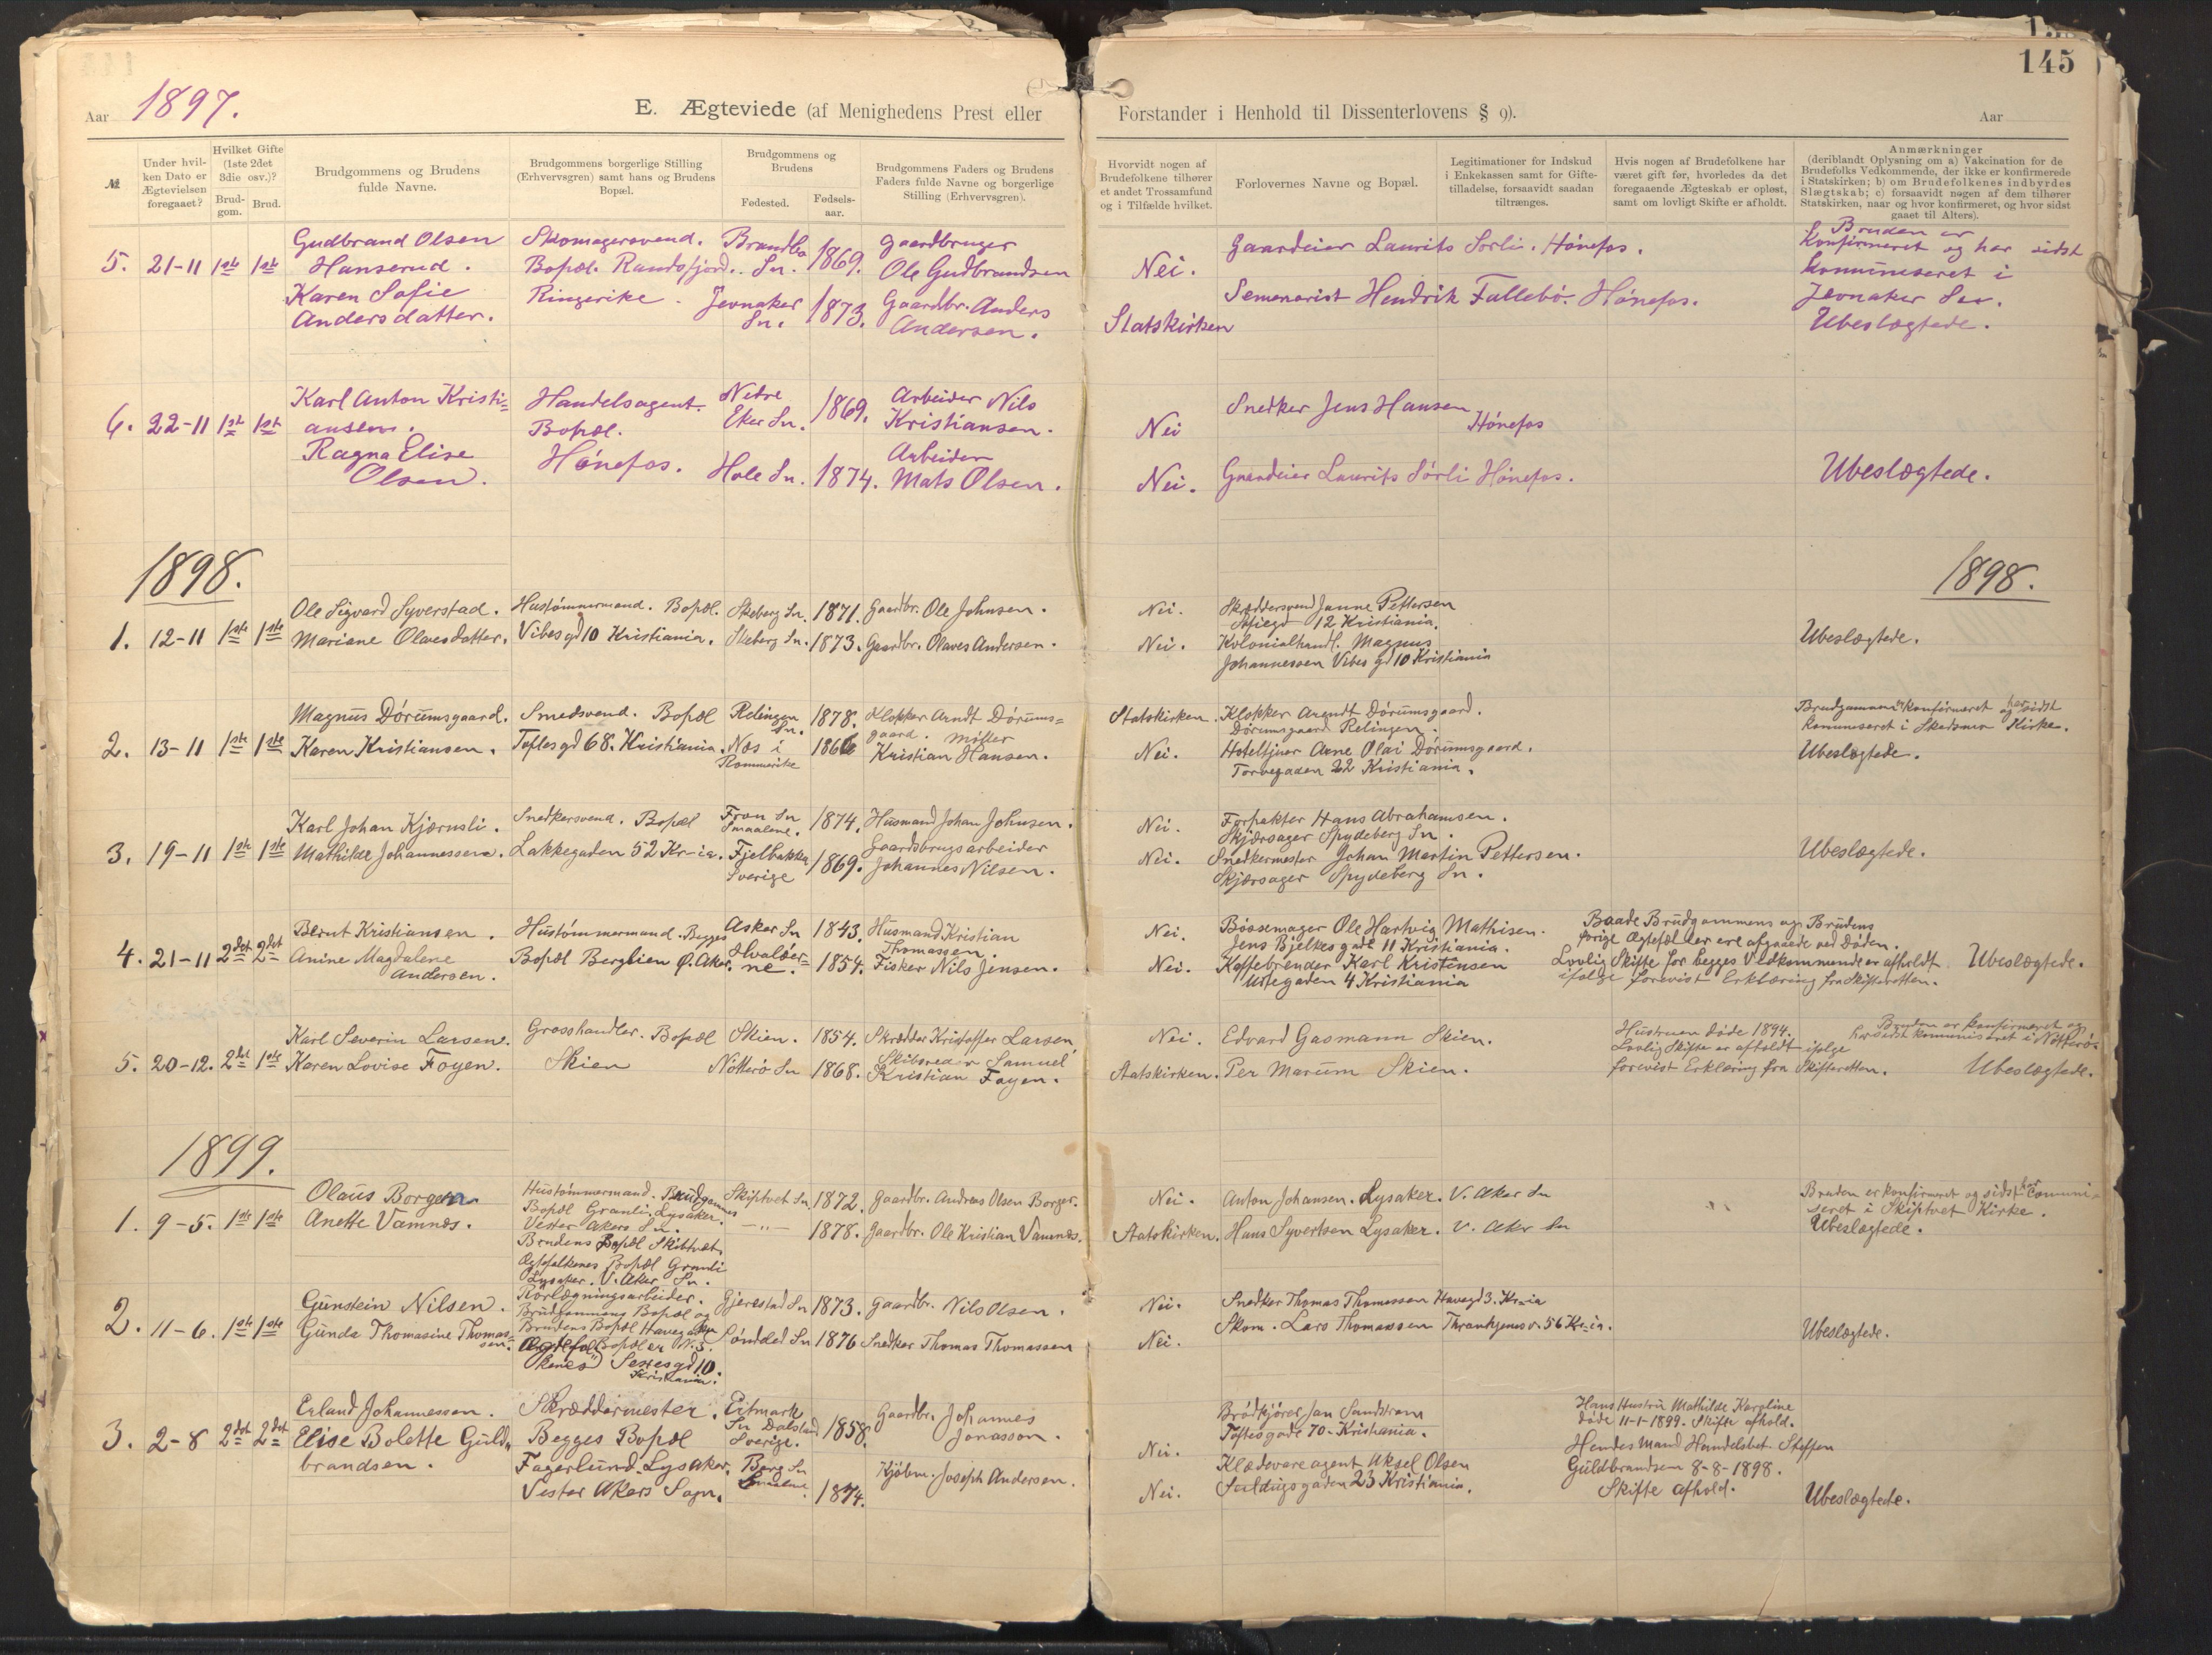 145
Aar 1897.
E. Ægteviede (af Menighedens Prest eller Forstander i Henhold til Dissenterlovens § 9).
Aar
№
Under hvil-
ken Dato er
Ægtevielsen
foregaaet?
Hvilket Gifte
(1ste 2det
3die osv.)?
Brud-
gom.
Brud.
Brudgommens og Brudens
fulde Navne.
Brudgommens borgerlige Stilling
(Erhvervsgren) samt hans og Brudens
Bopæl.
Brudgommens og
Brudens
Fødested.
Fødsels-
aar.
Brudgommens Faders og Brudens
Faders fulde Navne og borgerlige
Stilling (Erhvervsgren).
Hvorvidt nogen af
Brudefolkene tilhører
et andet Trossamfund
og i Tilfælde hvilket.
Forlovernes Navne og Bopæl.
Legitimationer for Indskud
i Enkekassen samt for Gifte-
tilladelse, forsaavidt saadan
tiltrænges.
Hvis nogen af Brudefolkene har
været gift før, hvorledes da det
foregaaende Ægteskab er opløst,
samt om lovligt Skifte er afholdt.
Anmærkninger
(deriblandt Oplysning om a) Vakcination for de
Brudefolks Vedkommende, der ikke er konfirmerede
i Statskirken; b) om Brudefolkenes indbyrdes
Slægtskab; c) forsaavidt nogen af dem tilhører
Statskirken, naar og hvor konfirmeret, og hvor sidst
gaaet til Alters).
5. 21-11 1ste 1ste
Gudbrand Olsen
Hanserud.
Karen Sofie
Andersdatter.
Skomagersvend.
Bopæl. Randsfjord.
Ringerike.
Brandbu
Sn. 1869.
Jevnaker
Sn. 1873.
Gaardbruger
Ole Gudbrandsen
Gaardbr. Anders
Andersen.
Nei.
Statskirken
Gaardeier Laurits Sørli. Hønefos.
Semenarist Hendrik Fallebø. Hønefos.
Bruden er
Konfirmeret og har sidst
kommuniseret i
Jevnaker Sn.
Ubeslægtede.
6. 22-11 1ste 1ste
Karl Anton Kristi=
ansen.
Ragna Elise
Olsen.
Handelsagent.
Bopæl.
Hønefos.
Nedre
Eker Sn. 1869.
Hole Sn. 1874.
Arbeider Nils
Kristiansen.
Arbeider
Mats Olsen.
Nei
Nei.
Snedker Jens Hansen
Hønefos
Gaardeier Laurits Sørli Hønefos.
Ubeslægtede.
1898.
1898.
1. 12-11 1ste 1ste
Ole Sigvard Syverstad.
Mariane Olavesdatter.
Hustømmermand. Bopæl.
Vibes gd 10 Kristiania.
Skeberg Sn. 1871.
Skeberg Sn. 1873.
Gaardbr. Ole Johnsen.
Gaardbr. Olaves Andersen.
Nei.
Nei.
Skræddersvend Janne Pettersen
12 Kristiania.
Kolonialhandl. Magnus
Johannessen Vibes gd 10 Kristiania
Ubeslægtede.
2. 13-11 1ste 1ste
Magnus Dørumsgaard.
Karen Kristiansen.
Smedsvend. Bopæl
Toftesgd 68. Kristiania.
Relingen
Sn. 1878.
Næs i
Rommerike 1866
Klokker Arndt Dørums=
gaard. Møller
Kristian Hansen.
Statskirken.
Nei.
Klokker Arendt Dørumsgaard.
Dørumsgaard Relingen.
Hoteltjner Arne Olai Dørumsgaard.
Torvegaden 22 Kristiania.
Brudgommen er konfirmeret og har sidst
kommuneseret i Skedsmo Kirke.
Ubeslægtede.
3. 19-11 1ste 1ste
Karl Johan Kjærnsli.
Mathilde Johannessen.
Snedkersvend. Bopæl
Lakkegaden 52 Kr-ia.
Fron Sn
Smaalene. 1874.
Fjelbakka
Sverige 1869.
Husmand Johan Johnsen.
Gaardsbrugsarbeider
Johannes Nilsen.
Nei.
Nei.
Forpakter Hans Abrahamsen.
Skjærsager Spydeberg Sn.
Snedkermester Johan Martin Pettersen.
Skjærsager Spydeberg Sn.
Ubeslægtede.
4. 21-11 2det 2det
Bernt Kristiansen.
Anine Magdalene
Andersen.
Hustømmermand. Begges
Bopæl Berglien Ø. Aker.
Asker Sn 1843.
Hvaløer=
ne. 1854.
Husmand Kristian
Thomassen.
Fisker Nils Jensen.
Nei.
Nei.
Bøssemager Ole Hartvig Mathisen.
Jens Bjelkes gade 11 Kristiania.
Kaffebrender Karl Kristensen
Urtegaden 4 Kristiania
Baade Brudgommens og Brudens
forige Ægtefæller ere afgaaede ved Døden.
Lovlig Skifte for begges Vedkommende er afholdt
ifølge forevist Erklæring fra Skifteretten.
Ubeslægtede.
5. 20-12. 2det 1ste
Karl Severin Larsen.
Karen Lovise Foyen.
Grosshandler. Bopæl
Skien
Skien. 1854.
Nøtterø Sn 1868.
Skrædder Kristoffer Larsen
Skibsreder Samuel
Kristian Foyen.
Nei.
Statskirken.
Edvard Gasmann Skien.
Per Marum Skien.
Hustruen døde 1894.
Lovlig Skifte er afholdt ifølge
forevist Erklæring fra Skifteretten.
Bruden er konfirmeret og
har sidst kommuniseret i Nøtterø.
Ubeslægtede.
1899.
1. 9-5. 1ste 1ste
Olaus Borgen
Anette Vamnæs.
Hustømmermand. Brudgommes
Bopæl Granli, Lysaker.
Vester Akers Sn.
Brudens Bopæl Skibtvet.
Ægtefolkenes Bopæl Granli
Lysaker. V. Aker Sn.
Skiptvet Sn 1872.
—"— 1878.
Gaardbr. Andreas Olsen Borger.
Gaardbr. Ole Kristian Vamnæs.
Nei.
Statskirken.
Anton Johansen. Lysaker. V. Aker Sn
Hans Syvertsen Lysaker. V. Aker Sn
Bruden er konfirmeret og sidst har Comuni-
seret i Skiptvet Kirke.
Ubeslægtede.
2. 11-6. 1ste 1ste
Gunstein Nilsen.
Gunda Thomasine Thomas=
sen.
Rørlægningsarbeider.
Brudgommens Bopæl og
Brudens Bopæl Havegaden
Bopæl er N. 3.
Sexesgd 10.
Kristiania.
Gjerestad Sn 1873.
Søndeled Sn 1876
Gaardbr. Nils Olsen.
Snedker Thomas Thomassen
Nei.
Nei.
Snedker Thomas Thomassen Havegd 3. Kr-ia
Skom. Lars Thomassen Thranhjemsv. 56 Kr-ia.
Ubeslægtede.
3. 2-8 2det 2det
Erland Johannessen.
Elise Bolette Guld=
brandsen.
Skræddermester.
Begges Bopæl
Fagerlund. Lysaker.
Vester Akers Sogn.
Ertmark
Sn Dalsland
Sverige. 1858.
Borg Sn
Smaalene 1874.
Gaardbr. Johannes
Jonasson.
Kjøbm. Joseph Andersen.
Nei.
Nei.
Brødkjører Jan Sandstrøm
Toftesgade 70. Kristiania.
Klædevareagent Aksel Olsen
23 Kristiania.
Hans Hustru Mathilde Karoline
døde 11-1-1899. Skifte afhold.
Hendes Mand Handelsbet. Steffen
Guldbrandsen 8-8-1898.
Skifte afhold.
Ubeslægtede.